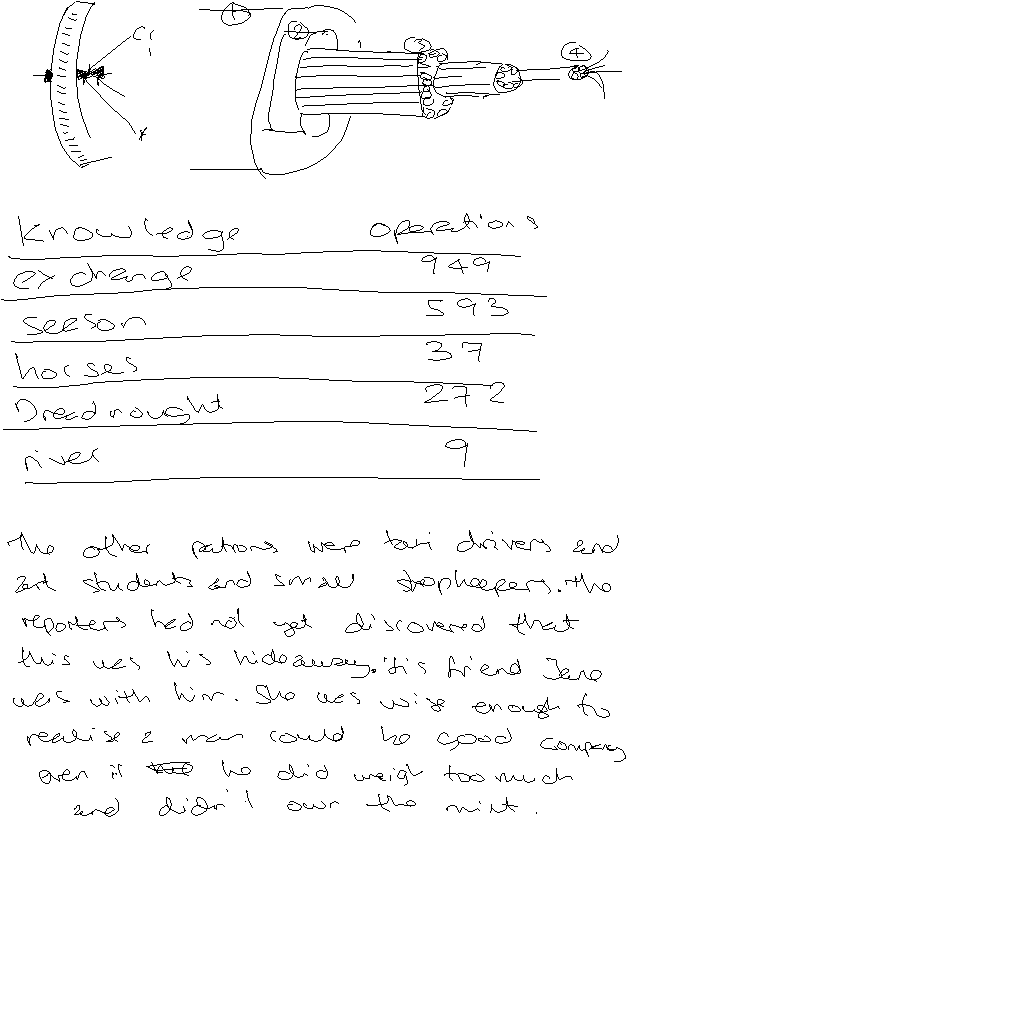 Cr
1
K
1
2
3
4
Knowledge operations
exchange 949
season 593
horses 37
Dreadnought 272
river 9
The other patrons were taxi drivers and
art students and small shopkeepers. The
reporters had not yet discovered that
this was his hideaway. His friend Jane
was with him. She was wise enough to
realise a man could be good company
even if he did weigh too much
and didn't own the mint.